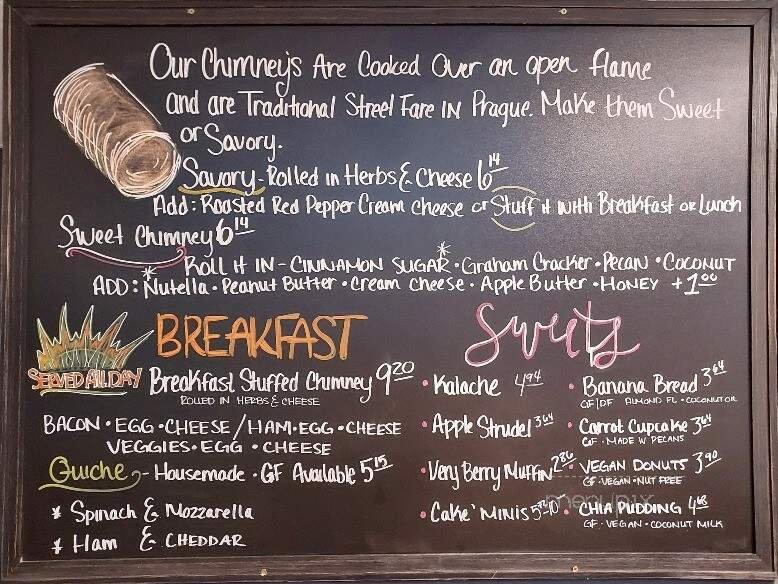 Our Chimneys Are Cooked Over an open flame
and are Traditional Street Fare IN Prague. Make them Sweet
or Savory.
Savory - Rolled in Herbs & Cheese 6 14
Add: Roasted Red Pepper Cream cheese or Stuff it with Breakfast or Lunch
Sweet Chimney 6 14
Roll it IN - CINNAMON SUGAR * · Graham Cracker · Pecan · COCONUT
ADD: * Nutella · Peanut Butter · Cream cheese · Apple Butter · HONEY + 1 00
BREAKFAST
SERVED All DAY
Breakfast Stuffed Chimney 9 20
ROLLED IN HERBS & CHEESE
BACON · EGG · CHEESE / HAM · EGG · CHEESE
VEGGIES · EGG · CHEESE
Quiche - Housemade · GF Available 5 15
* Spinach & Mozzarella
* Ham & CHEDDAR
Sweets
· Kalache 4 94
· Apple Strudel 3 64
· Very Berry Muffin 2 86
· Cake' MINIS
· Banana Bread 3 64
GF|DF ALMOND FL · COCONUT OIL
· Carrot Cupcake 3 64
GF · MADE W PECANS
· VEGAN DONUTS 3 90
GF · VEGAN · NUT FREE
· CHIA PUDDING 4 68
GF · VEGAN · COCONUT MILK
menupix